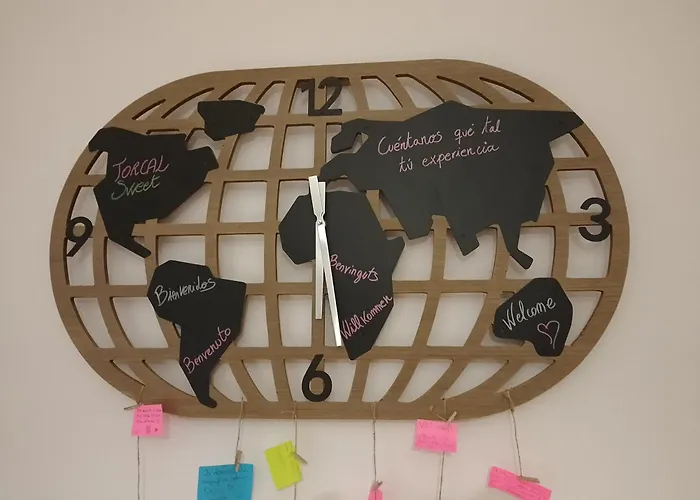 12
Cuéntanos qué tal
tú experiencia
TORCAL
Sweet
9
3
Benvinguts
Bienvenidos
Willkommen
Welcome
Benvenuto
6